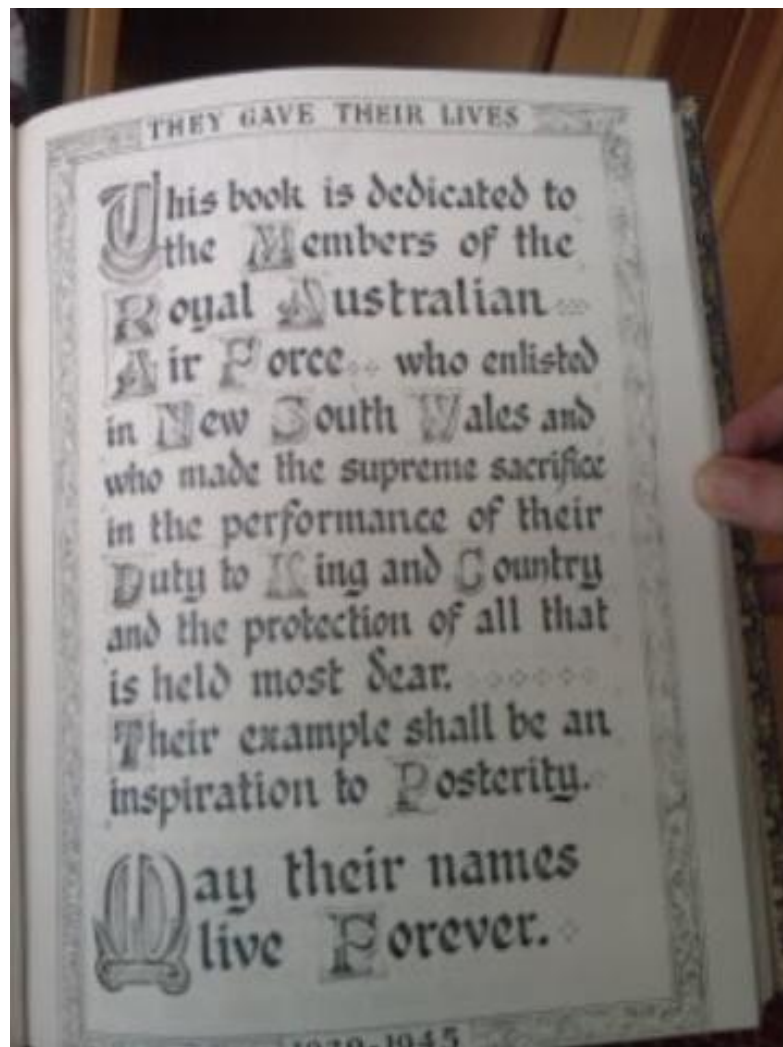 THEY GAVE THEIR LIVES
This book is dedicated to
the Members of the
Royal Australian
Air Force who enlisted
in New South Wales and
who made the supreme sacrifice
in the performance of their
Duty to King and Country
and the protection of all that
is held most dear.
Their example shall be an
inspiration to Posterity.
May their names
live Forever.
1939-1945